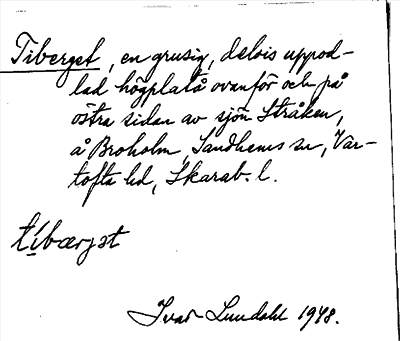 Tiberget, en grusig, delvis uppod-
lad högplatå ovanför och på
östra sidan av sjön Stråken,
å Broholm, Sandhems sn, Var-
tofta hd, Skarab. l.
tibærjət
Ivar Lundahl 1948.